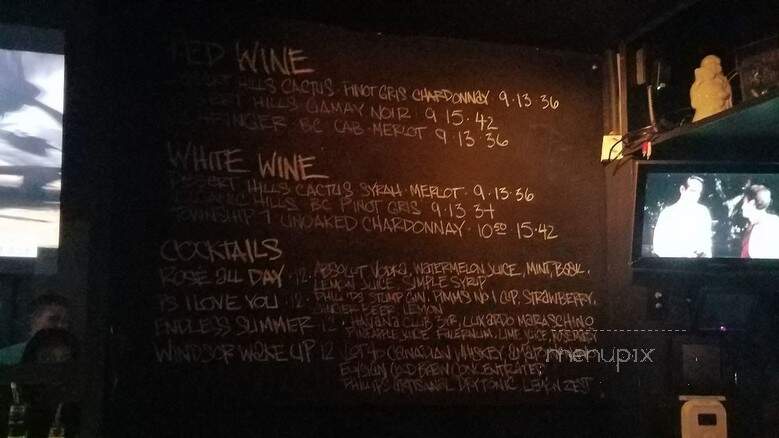 RED WINE
HILLS CACTUS · PINOT GRIS CHARDONNAY 9·13·36
HILLS GAMAY NOIR 9 15·42
BC CAB·MERLOT 9·13·36
WHITE WINE
DESERT HILLS CACTUS SYRAH·MERLOT·9·13·36
HILLS BC PINOT GRIS·9·13 34
TOWNSHIP 7 UNOAKED CHARDONNAY·10⁵⁰·15·42
COCKTAILS
ROSE ALL DAY·12· ABSOLUT VODKA, WATERMELON JUICE, MINT, BASIL,
LEMON JUICE, SIMPLE SYRUP
PS I LOVE YOU·12· PHILLIPS STUMP GIN, PIMMS NO 1 CUP, STRAWBERRY,
GINGER BEER, LEMON
ENDLESS SUMMER 12· HAVANA CLUB 3YR, LUXARDO MARASCHINO
PINEAPPLE JUICE FALERNUM, LIME JUICE, ROSEMARY
WINDSOR WAKE UP 12 LOT 40 CANADIAN WHISKEY
COLD BREW CONCENTRATE
PHILLIPS TONIC LEMON ZEST
menupix